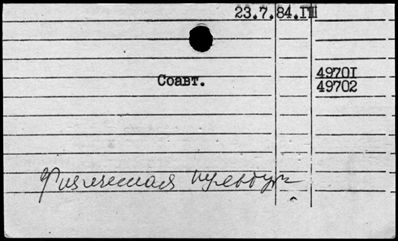 23.7.84.III
Соавт.
49701
49702
Физическая культура